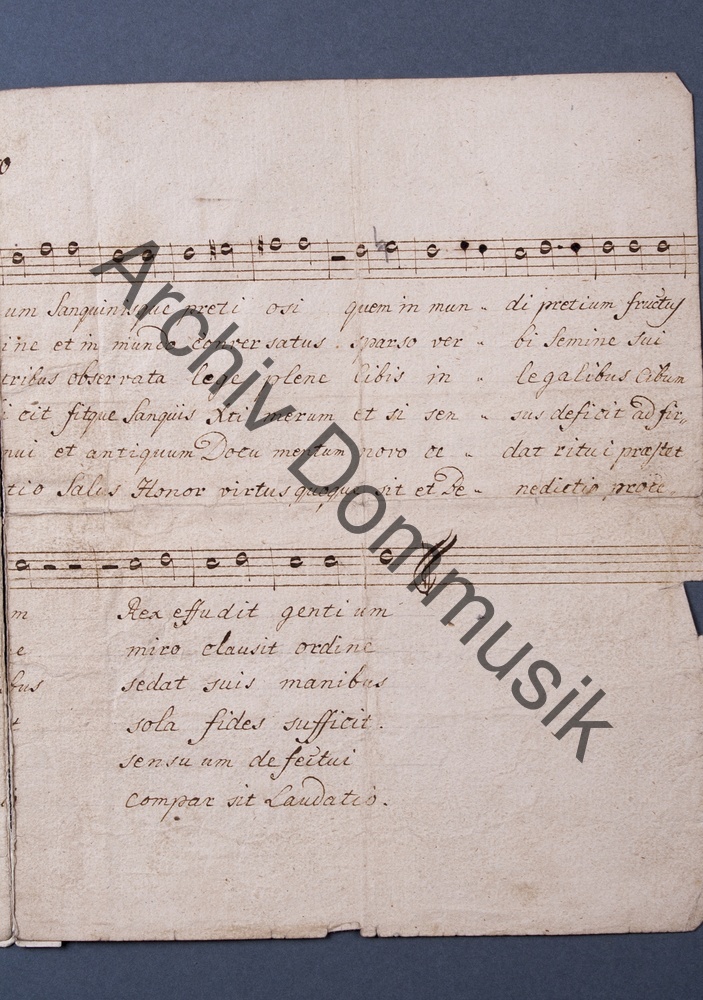 o
um Sanguinisque preti osi quem in mun di pretium fructus
ine et in mundo conversatus sparso ver bi Semine sui
tribus observata lege plene Cibis in legalibus Cibum
i cit fitque Sanguis Xti merum et si sen sus deficit ad fir
nui et antiquum Docu mentum novo ce dat ritu i præstet
tio Salus Honor virtus quoque sit et Be nedictio proce
m Rex effudit genti um
e miro clausit ordine
bus sedat suis manibus
t sola fides sufficit.
sensu um defectui
compar sit Laudatio.
Archiv Dommusik